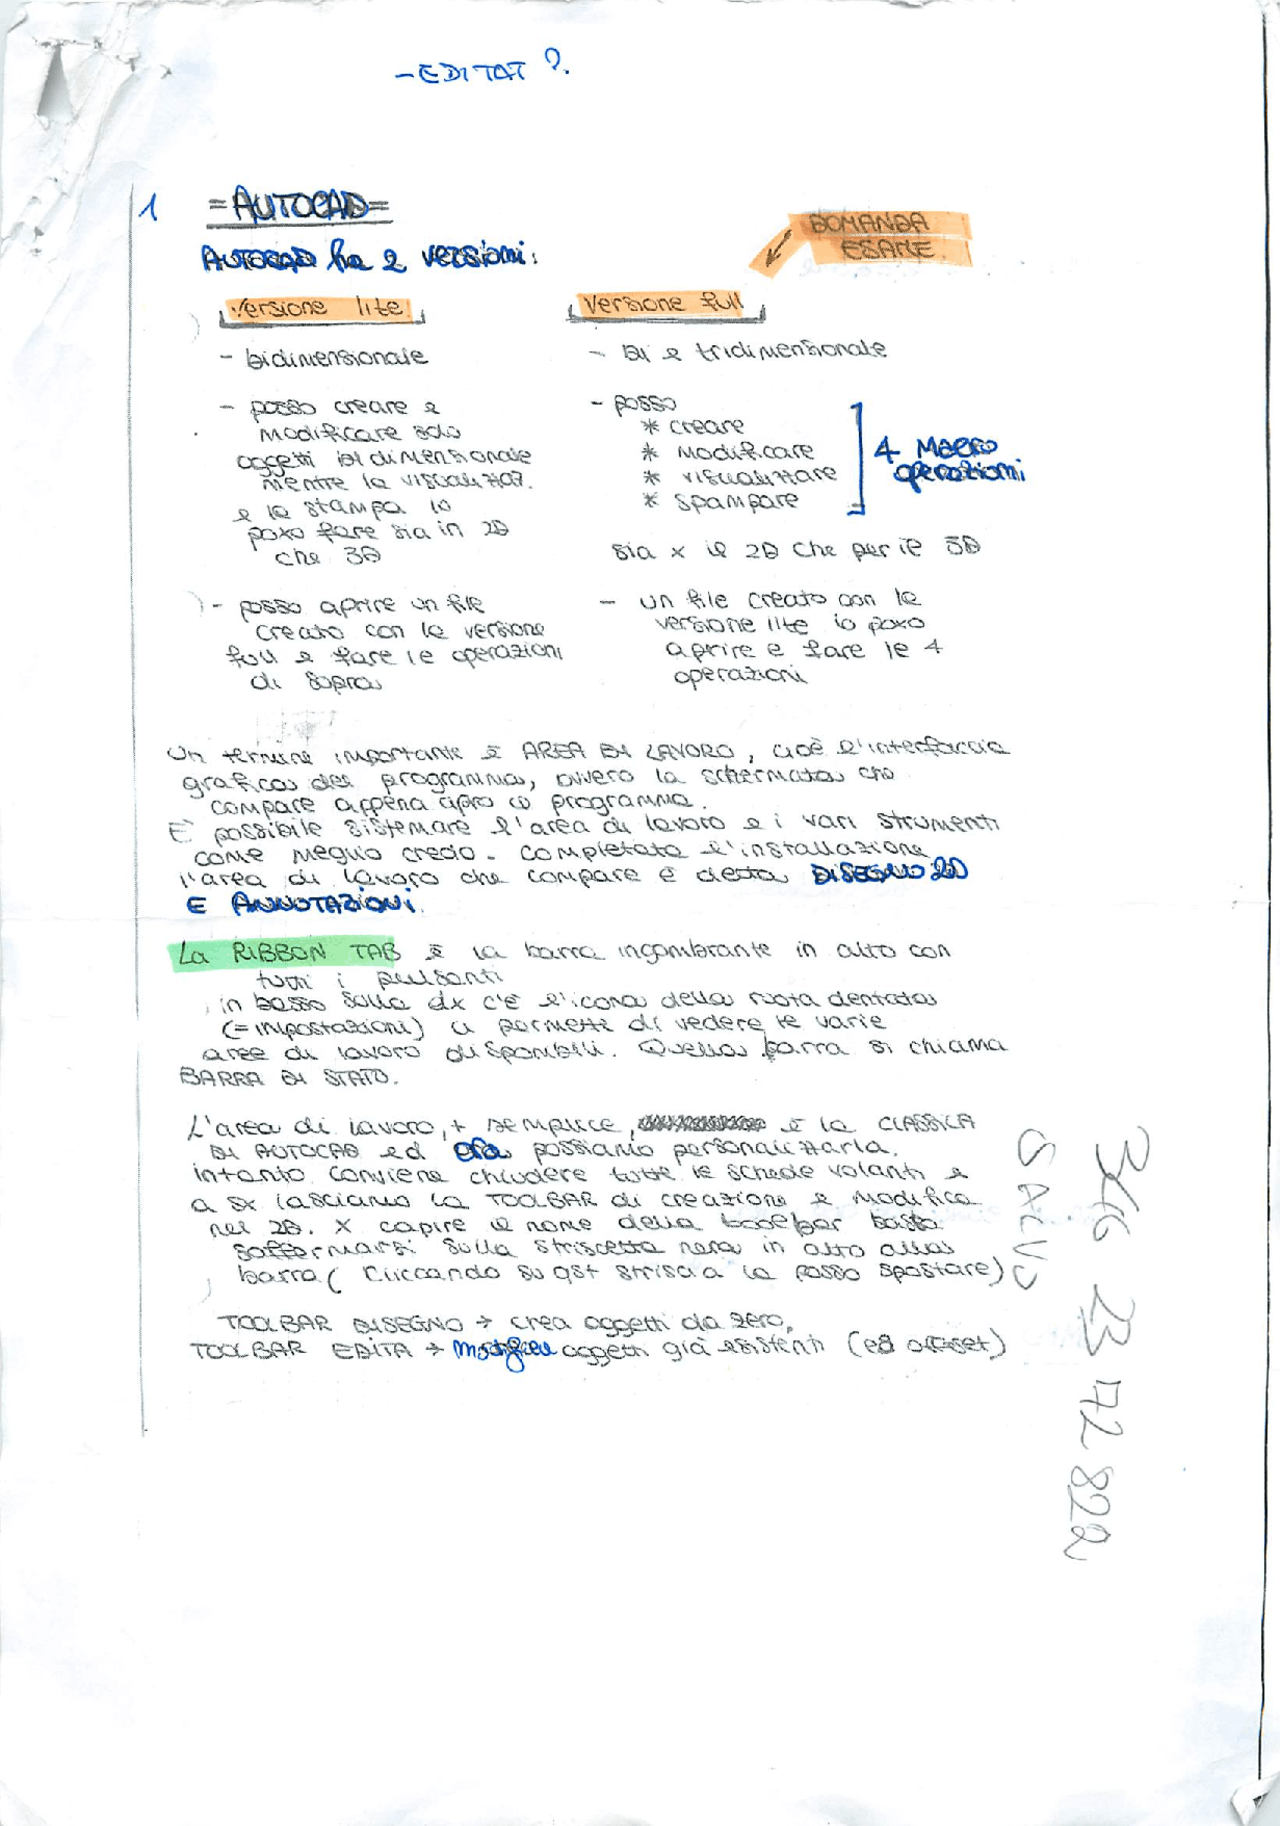 - EDITAT ?.
1 =AUTOCAD=
AUTOCAD ha 2 versioni:
DOMANDA
ESAME
Versione lite:
- bidimensionale
- posso creare e
modificare solo
oggetti bidimensionale
mentre la visualizzaz.
e la stampa lo
posso fare sia in 2D
che 3D
- posso aprire un file
creato con la versione
full e fare le operazioni
di sopra
Versione full
- bi e tridimensionale
- posso
* creare
* modificare
* visualizzare
* spampare
4 Macro
operazioni
sia x il 2D che per il 3D
- un file creato con la
versione lite lo posso
aprire e fare le 4
operazioni
Un termine importante è AREA DI LAVORO, cioè l'interfaccia
grafica del programma, ovvero la schermata che
compare appena apro il programma.
È possibile sistemare l'area di lavoro e i vari strumenti
come meglio credo. Completata l'installazione
l'area di lavoro che compare è detta DISEGNO 2D
E ANNOTAZIONI.
La RIBBON TAB è la barra ingombrante in alto con
tutti i pulsanti
in basso sulla dx c'è l'icona della ruota dentata
(=impostazioni) ci permette di vedere le varie
aree di lavoro disponibili. Quella barra si chiama
BARRA DI STATO.
L'area di lavoro, + semplice, è la CLASSICA
DI AUTOCAD ed ora possiamo personalizzarla.
intanto conviene chiudere tutte le schede volanti e
a sx lasciamo la TOOLBAR di creazione e modifica
nel 2D. X capire il nome della toolbar basta
soffermarsi sulla striscetta nera in alto alla
barra ( Cliccando su qst striscia la posso spostare)
TOOLBAR DISEGNO → crea oggetti da zero.
TOOLBAR EDITA → modifica oggetti già esistenti (es offset)
SALVO
346 23 72 822